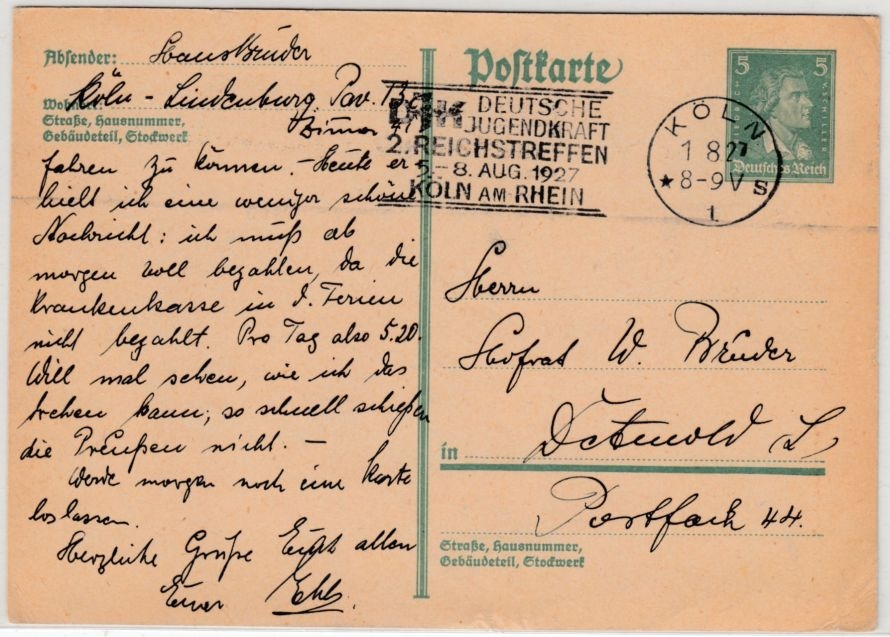 Absender: Hans Brüder
Köln - Lindenburg. Pav. 13
Wohnort:
Straße, Hausnummer,
Gebäudeteil, Stockwerk
fahren zu können. - Heute er
hielt ich eine weniger schöne
Nachricht: ich muß ab
morgen voll bezahlen, da die
Krankenkasse in d. Ferien
nicht bezahlt. Pro Tag also 5.20.
Will mal sehen, wie ich das
drehen kann; so schnell schießen
die Preußen nicht. -
Werde morgen noch eine Karte
loslassen.
Herzliche Grüße Euch allen
Euer
Postkarte
DJK DEUTSCHE
JUGENDKRAFT
2. REICHSTREFFEN
5.-8. AUG. 1927
KÖLN AM RHEIN
KÖLN
1 8 27
* 8-9 V S
1
5 5
Deutsches Reich
Herrn
Hofrat W. Brüder
in Detmold L
Postfach 44.
Straße, Hausnummer,
Gebäudeteil, Stockwerk